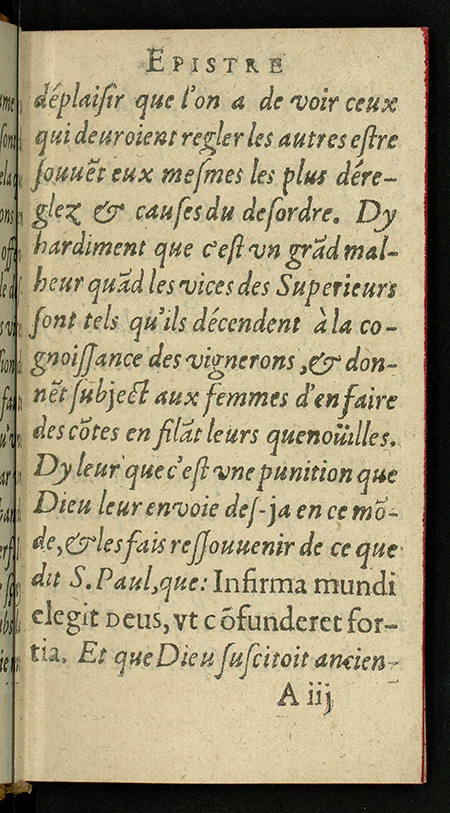 EPISTRE
déplaiſir que l'on a de voir ceux
qui deuroient regler les autres eſtre
ſouuẽt eux meſmes les plus dére-
glez & cauſes du deſordre. Dy
hardiment que c'eſt vn grãd mal-
heur quãd les vices des Superieurs
ſont tels qu'ils décendent à la co-
gnoiſſance des vignerons, & don-
nẽt ſubject aux femmes d'en faire
des cõtes en filãt leurs quenoüilles.
Dy leur que c'eſt vne punition que
Dieu leur enuoie deſ-ja en ce mõ-
de, & les fais reſſouuenir de ce que
dit S. Paul, que: Infirma mundi
elegit Deus, vt cõfunderet for-
tia. Et que Dieu ſuſcitoit ancien-
A iij